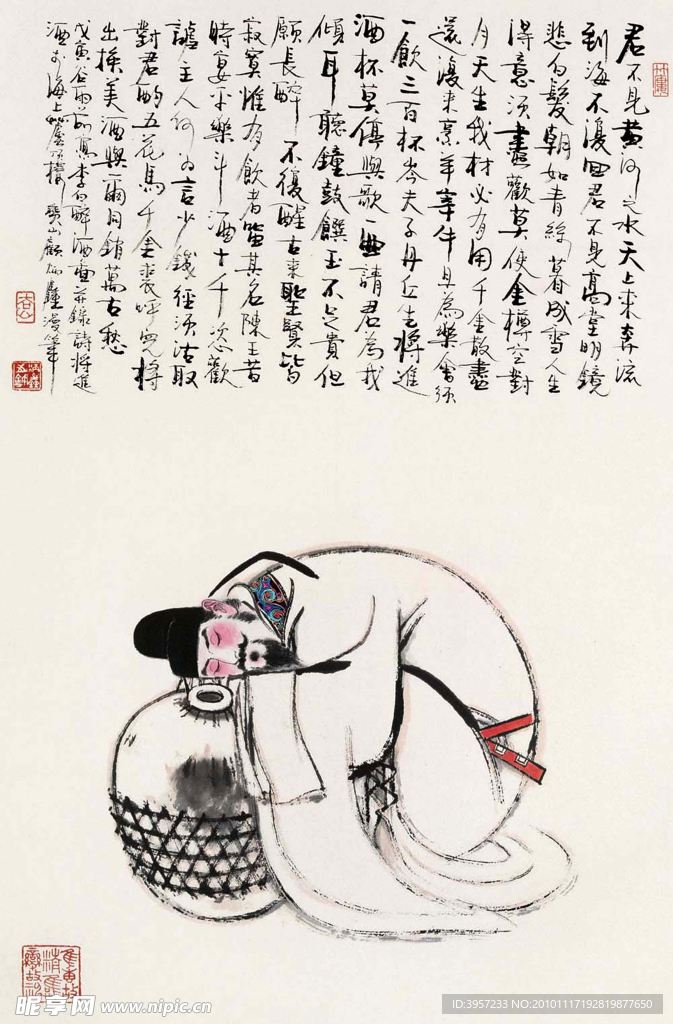 君不見黄河之水天上來奔流
到海不復回君不見高堂明鏡
悲白髮朝如青絲暮成雪人生
得意須盡歡莫使金樽空對
月天生我材必有用千金散盡
還復來烹羊宰牛且為樂會須
一飲三百杯岑夫子丹丘生將進
酒杯莫停與歌一曲請君為我
傾耳聽鐘鼓饌玉不足貴但
願長醉不復醒古來聖賢皆
寂寞惟有飲者留其名陳王昔
時宴平樂斗酒十千恣歡
謔主人何為言少錢徑須沽取
對君酌五花馬千金裘呼兒將
出換美酒與爾同銷萬古愁
戊寅谷雨前寫李白醉酒圖並錄詩將進
酒於海上 山顧炳鑫漫筆
昵享网 www.nipic.cn
ID:3957233 NO:20101117192819877650